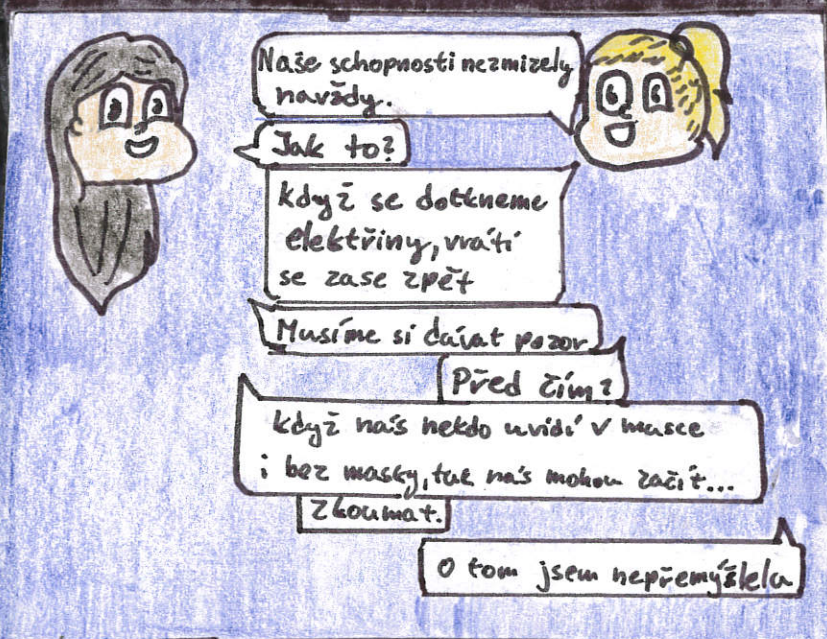 Naše schopnosti nezmizely
navždy.
Jak to?
když se dotkneme
elektřiny, vrátí
se zase zpět
Musíme si dávat pozor
Před čím?
když nás nekdo uvidí v masce
i bez masky, tak nás mohou začít...
zkoumat.
O tom jsem nepřemýšlela